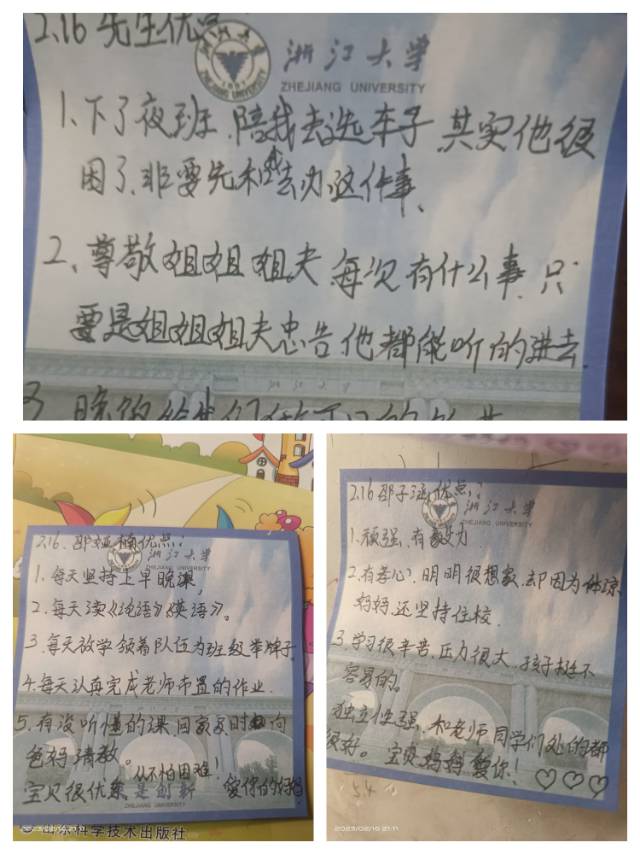 2.16 先生优点
浙江大学
ZHEJIANG UNIVERSITY
1、下了夜班、陪我去选车子、其实他很
困了、非要先和我去办这件事、
2、尊敬姐姐姐夫、每次有什么事、只
要是姐姐姐夫忠告他都能听的进去.
3、晚饭给我们做
2.16、邵娅楠优点:
浙江大学
ZHEJIANG UNIVERSITY
1、每天坚持上早晚课,
2、每天读《论语》《英语》。
3、每天放学领着队伍为班级举牌子.
4、每天认真完成老师布置的作业.
5、有没听懂的课回家及时询问
爸妈请教。
从不怕困难!
宝贝很优秀
是创新
爱你的妈妈
ZHEJIANG UNIVERSITY
科学技术出版社
2023/02/16 21:11
2.16 邵子涵优点:
浙江大学
ZHEJIANG UNIVERSITY
1、顽强、有毅力
2、有孝心、明明很想家、却因为体谅
妈妈还坚持住校.
3、学习很辛苦、压力很大、孩子挺不
容易的。
独立性强、和老师同学们处的都
很好。宝贝妈妈爱你!♡♡♡
54
2023/02/16 21:11